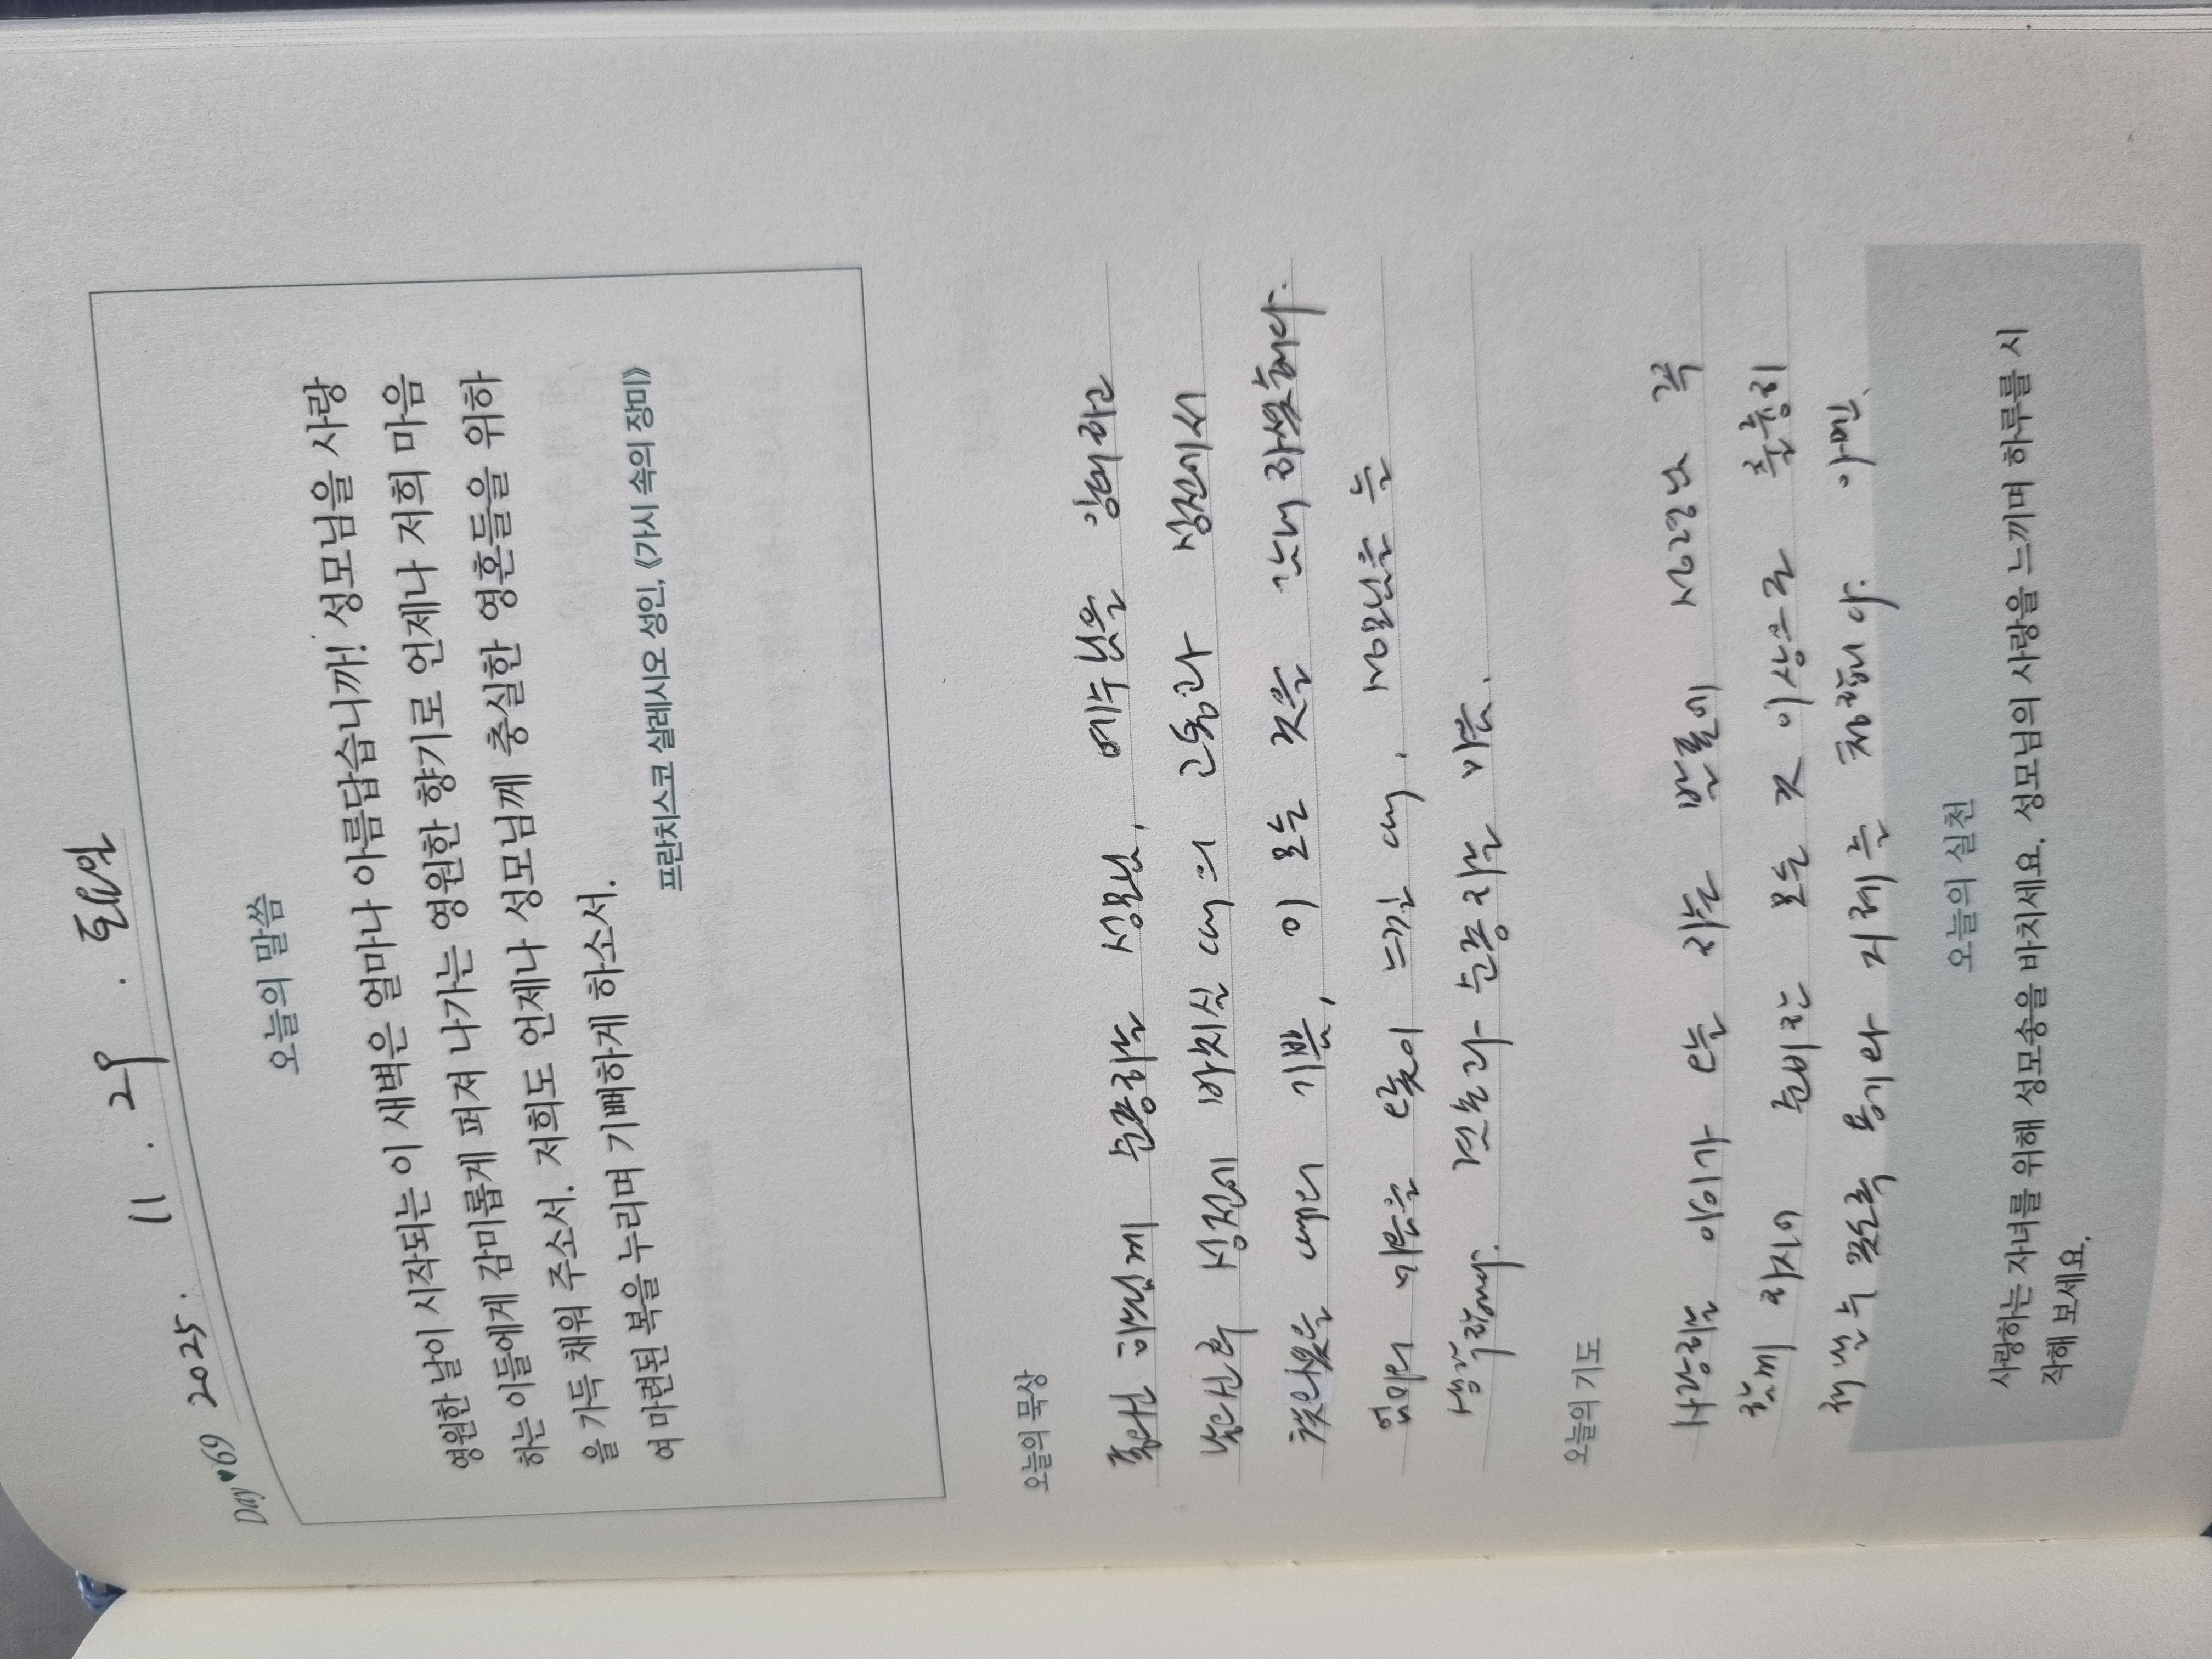 Day♥69 2025. 11. 29. 토요일
오늘의 말씀
영원한 날이 시작되는 이 새벽은 얼마나 아름답습니까! 성모님을 사랑
하는 이들에게 감미롭게 퍼져 나가는 영원한 향기로 언제나 저희 마음
을 가득 채워 주소서. 저희도 언제나 성모님께 충실한 영혼들을 위하
여 마련된 복을 누리며 기뻐하게 하소서.
프란치스코 살레시오 성인, 《가시 속의 장미》
오늘의 묵상
하느님께 순종하는 성모님, 예수님을 잉태하고
낳으신 후 성전에 바치실 때의 고통과 성전에서
기쁨, 이 모든 것을 인내하셨습니다.
엄마의 마음을 같이 느낀 때, 성모님을 는
생각합니다. 순종하는 마음.
오늘의 기도
사랑하는 아이가 오늘 하는 변론에 성령님 꼭
함께 하시어 준비한 모든 것 이상으로 충분히
해낼 수 있도록 용기와 지혜를 청합니다. 아멘.
오늘의 실천
사랑하는 자녀를 위해 성모송을 바치세요. 성모님의 사랑을 느끼며 하루를 시
작해 보세요.